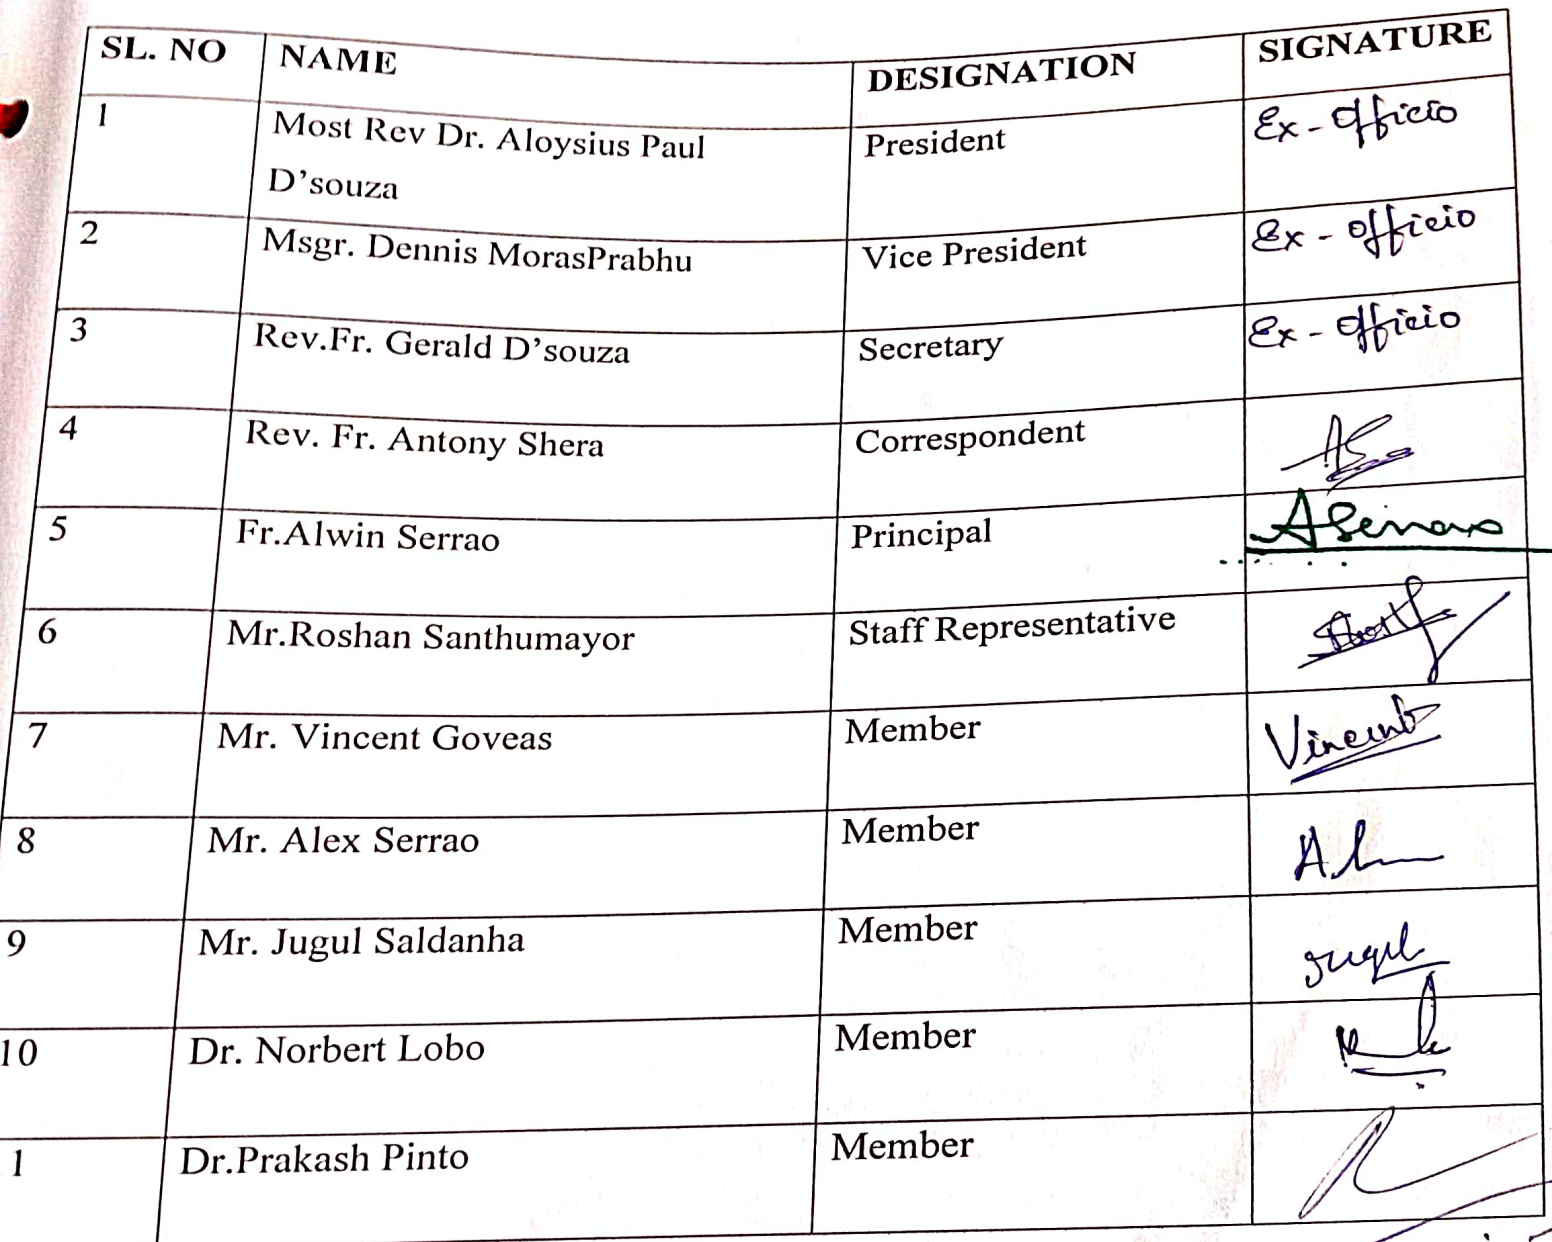 SL. NO NAME DESIGNATION SIGNATURE
1 Most Rev Dr. Aloysius Paul President Ex-Officio
D'souza
2 Msgr. Dennis MorasPrabhu Vice President Ex-Officio
3 Rev.Fr. Gerald D'souza Secretary Ex-Officio
4 Rev. Fr. Antony Shera Correspondent
5 Fr.Alwin Serrao Principal ASerrao
6 Mr.Roshan Santhumayor Staff Representative
7 Mr. Vincent Goveas Member Vincent
8 Mr. Alex Serrao Member
9 Mr. Jugul Saldanha Member Jugul
10 Dr. Norbert Lobo Member
1 Dr.Prakash Pinto Member